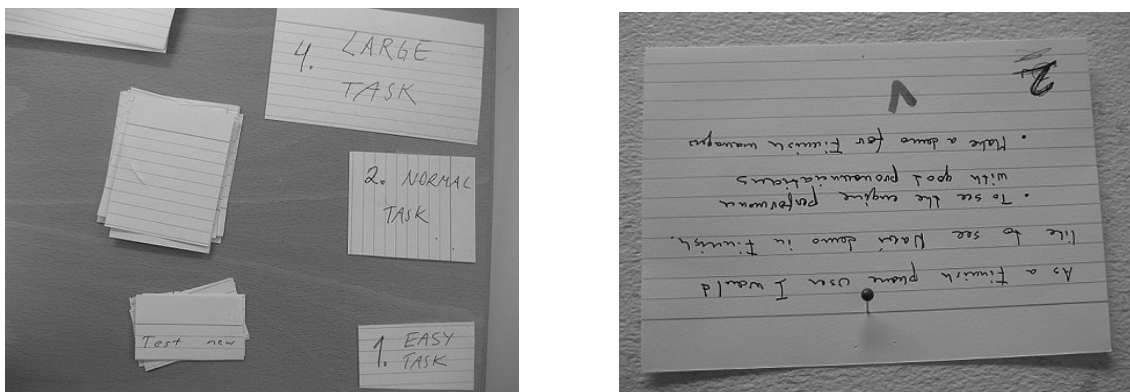 4. LARGE
TASK
2. NORMAL
TASK
Test new
1. EASY
TASK
As a Finnish phone user I would
like to see Navi demo in Finnish.
• To see the engine performance
with good pronunciations
• Make a demo for Finnish managers
2